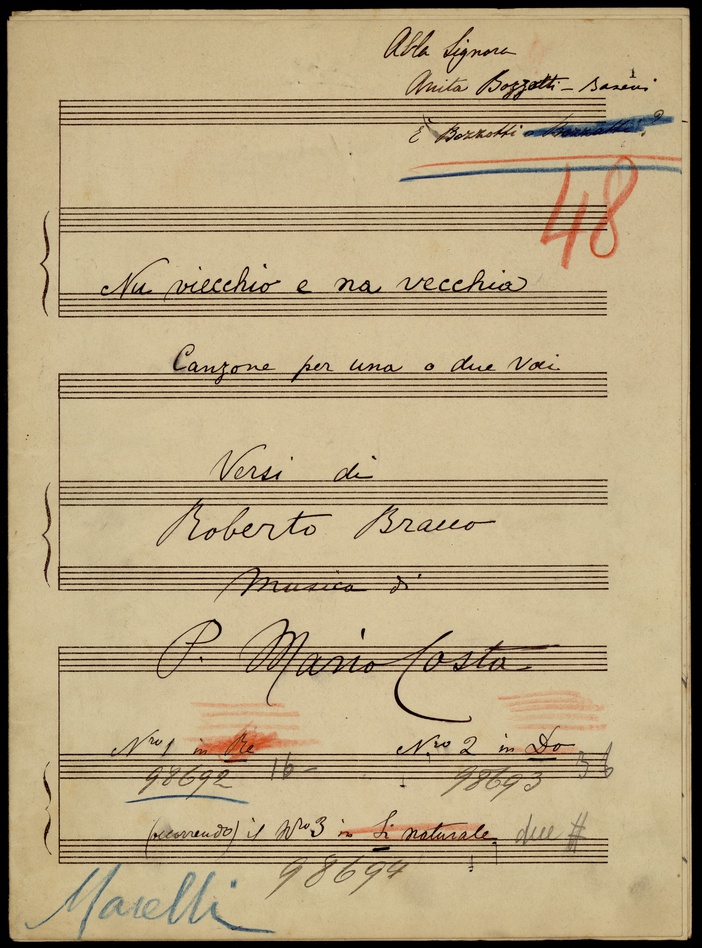 Alla Signora
Anita Bozzetti - Baseni
È Bozzotti o Bozzatti?
48
Nu viecchio e na vecchia
Canzone per una o due Voci
Versi di
Roberto Bracco
Musica di
P. Mario Costa
Nro 1 in Re Nro 2 in Do
98692 1b 98693 3b
(occorrendo) il Nro 3 in Si naturale due #
98694